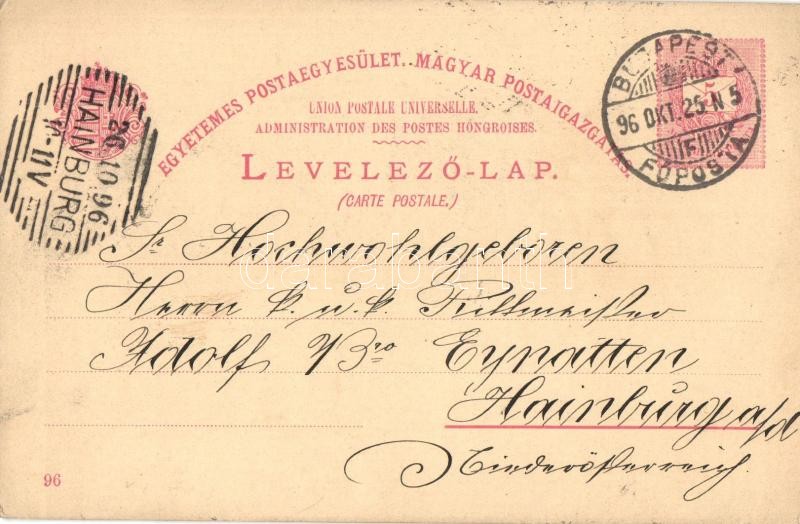 EGYETEMES POSTAEGYESÜLET. MAGYAR POSTAIGAZGATÁS.
UNION POSTALE UNIVERSELLE.
ADMINISTRATION DES POSTES HONGROISES.
LEVELEZŐ-LAP.
(CARTE POSTALE.)
BUDAPEST
96 OKT. 25. N 5
FŐPOSTA
26.10.96
HAINBURG
Sr Hochwohlgeboren
Herrn k. u. k. Rittmeister
Adolf Bro Eynatten
Hainburg a/d
Niederösterreich.
96
darabanth